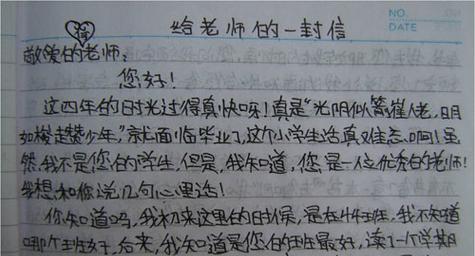 给老师的一封信
NO.
DATE
敬爱的老师:
您好!
这四年的时光过得真快呀!真是"光阴似箭催人老,日月
如梭趱少年,"就面临毕业了,这个小学生活真难忘啊!虽
然,我不是您的学生,但是,我知道,您是一位优秀的老师!
我想和你说几句心里话!
你知道吗,我初来这里的时候,是在4班,我不知道
哪个班好,后来,我知道是您的班最好,读了一个学期